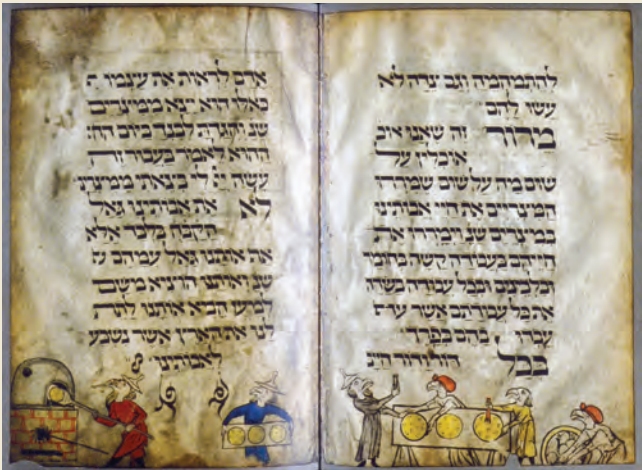 להתמהמה וגם צדה לא
עשו להם
מרור זה שאנו אוכ
אוכלין על
שום מה על שום שמררו
המצריים את חיי אבותינו
במצרים שנ וימררו את
חייהם בעבודה קשה בחומר
ובלבנים ובכל עבודה בשדה
את כל עבודתם אשר
עבדו בהם בפרך
בכל דור ודור חייב
אדם לראות את עצמו כ
כאלו הוא יצא ממצרים
שנ והגדת לבנך ביום הה
ההוא לאמר בעבור זה
עשה ייי לי בצאתי ממצרים
לא את אבותינו גאל
הקבה בלבד אלא
אף אותנו גאל עמהם
שנ ואותנו הוציא משם
למען הביא אותנו לתת
לנו את הארץ אשר נשבע
לאבותינו